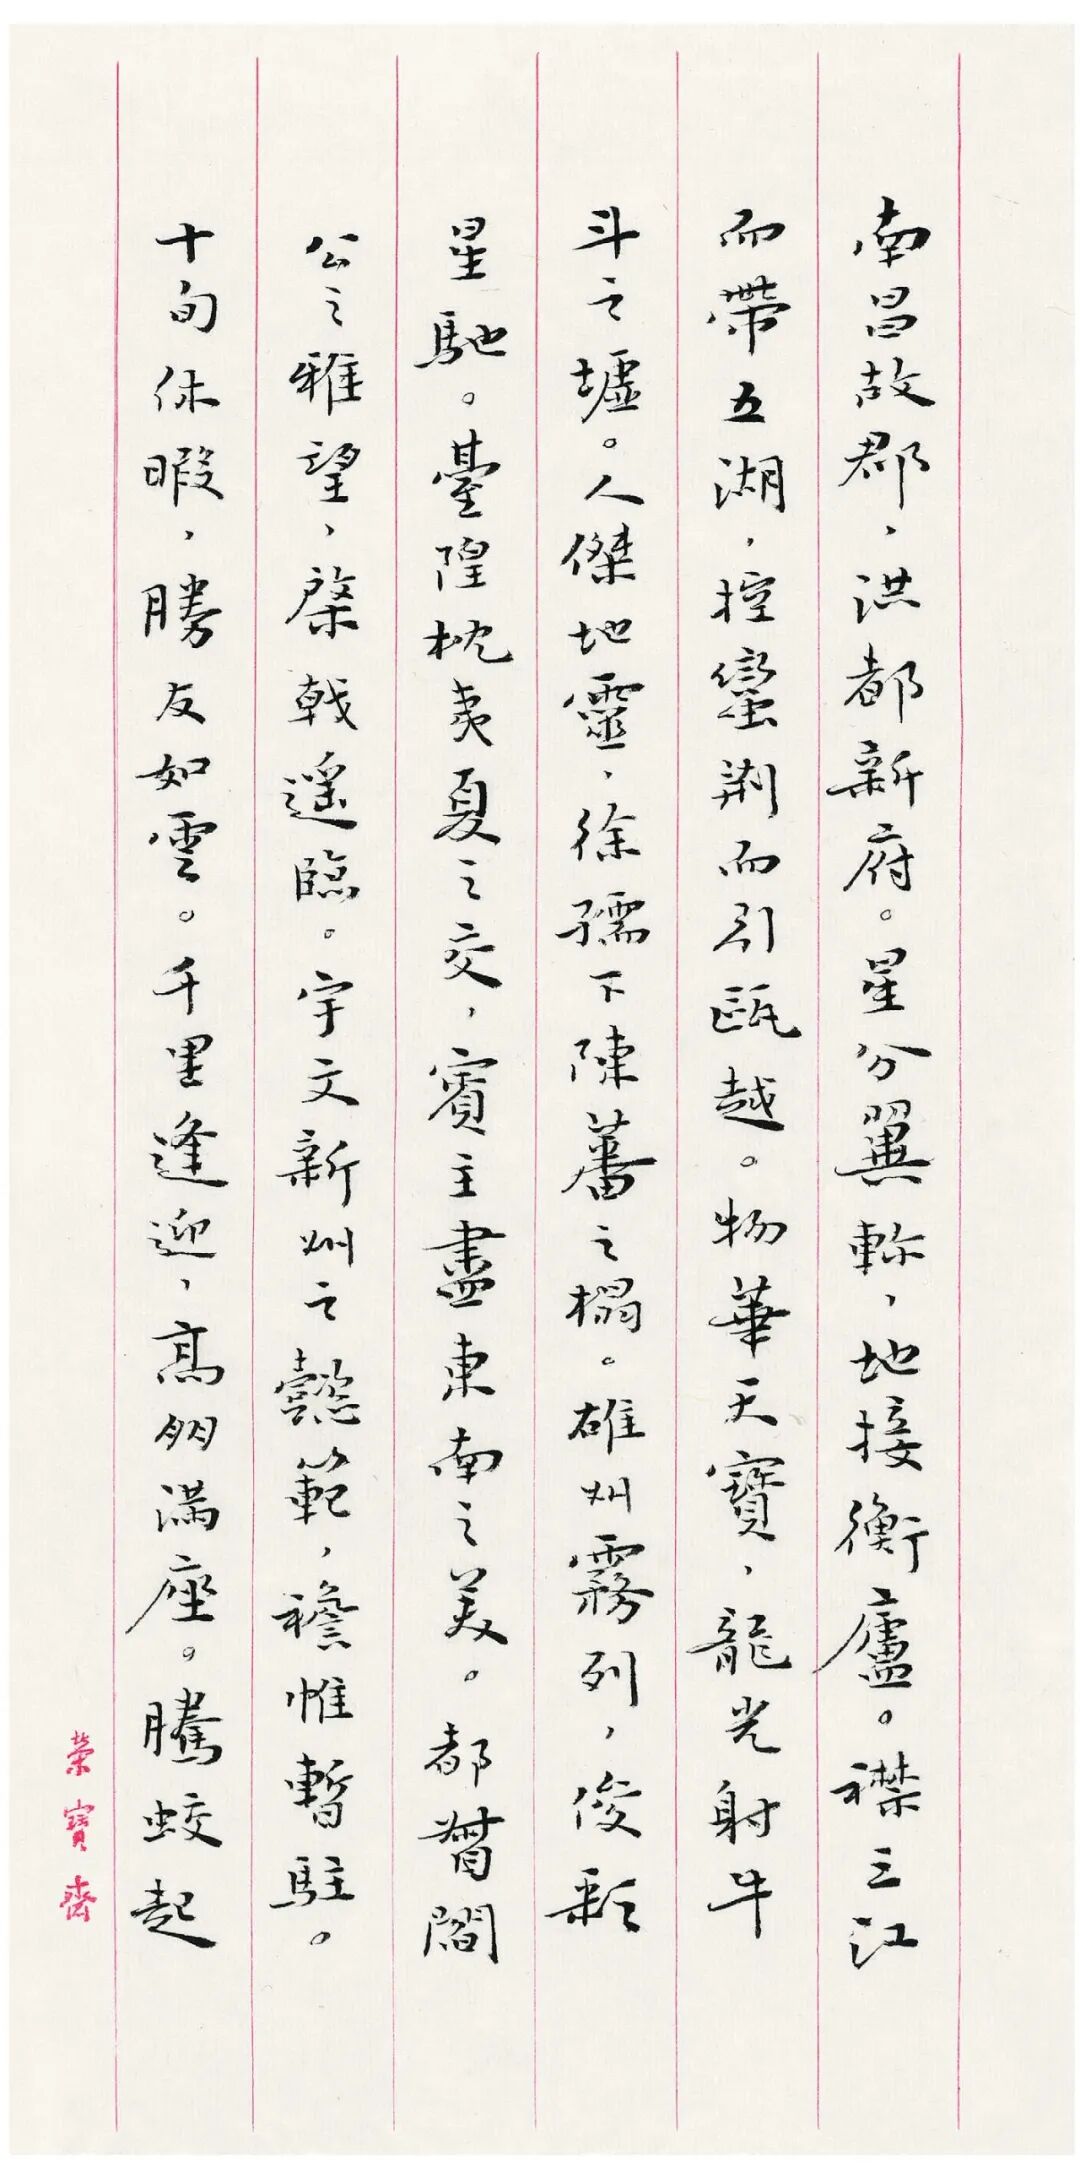 南昌故郡，洪都新府。星分翼軫，地接衡廬。襟三江
而帶五湖，控蠻荆而引甌越。物華天寶，龍光射牛
斗之墟。人傑地靈，徐孺下陳蕃之榻。雄州霧列，俊彩
星馳。臺隍枕夷夏之交，賓主盡東南之美。都督閻
公之雅望，棨戟遥臨。宇文新州之懿範，襜帷暫駐。
十旬休暇，勝友如雲。千里逢迎，高朋滿座。騰蛟起
榮寶齋